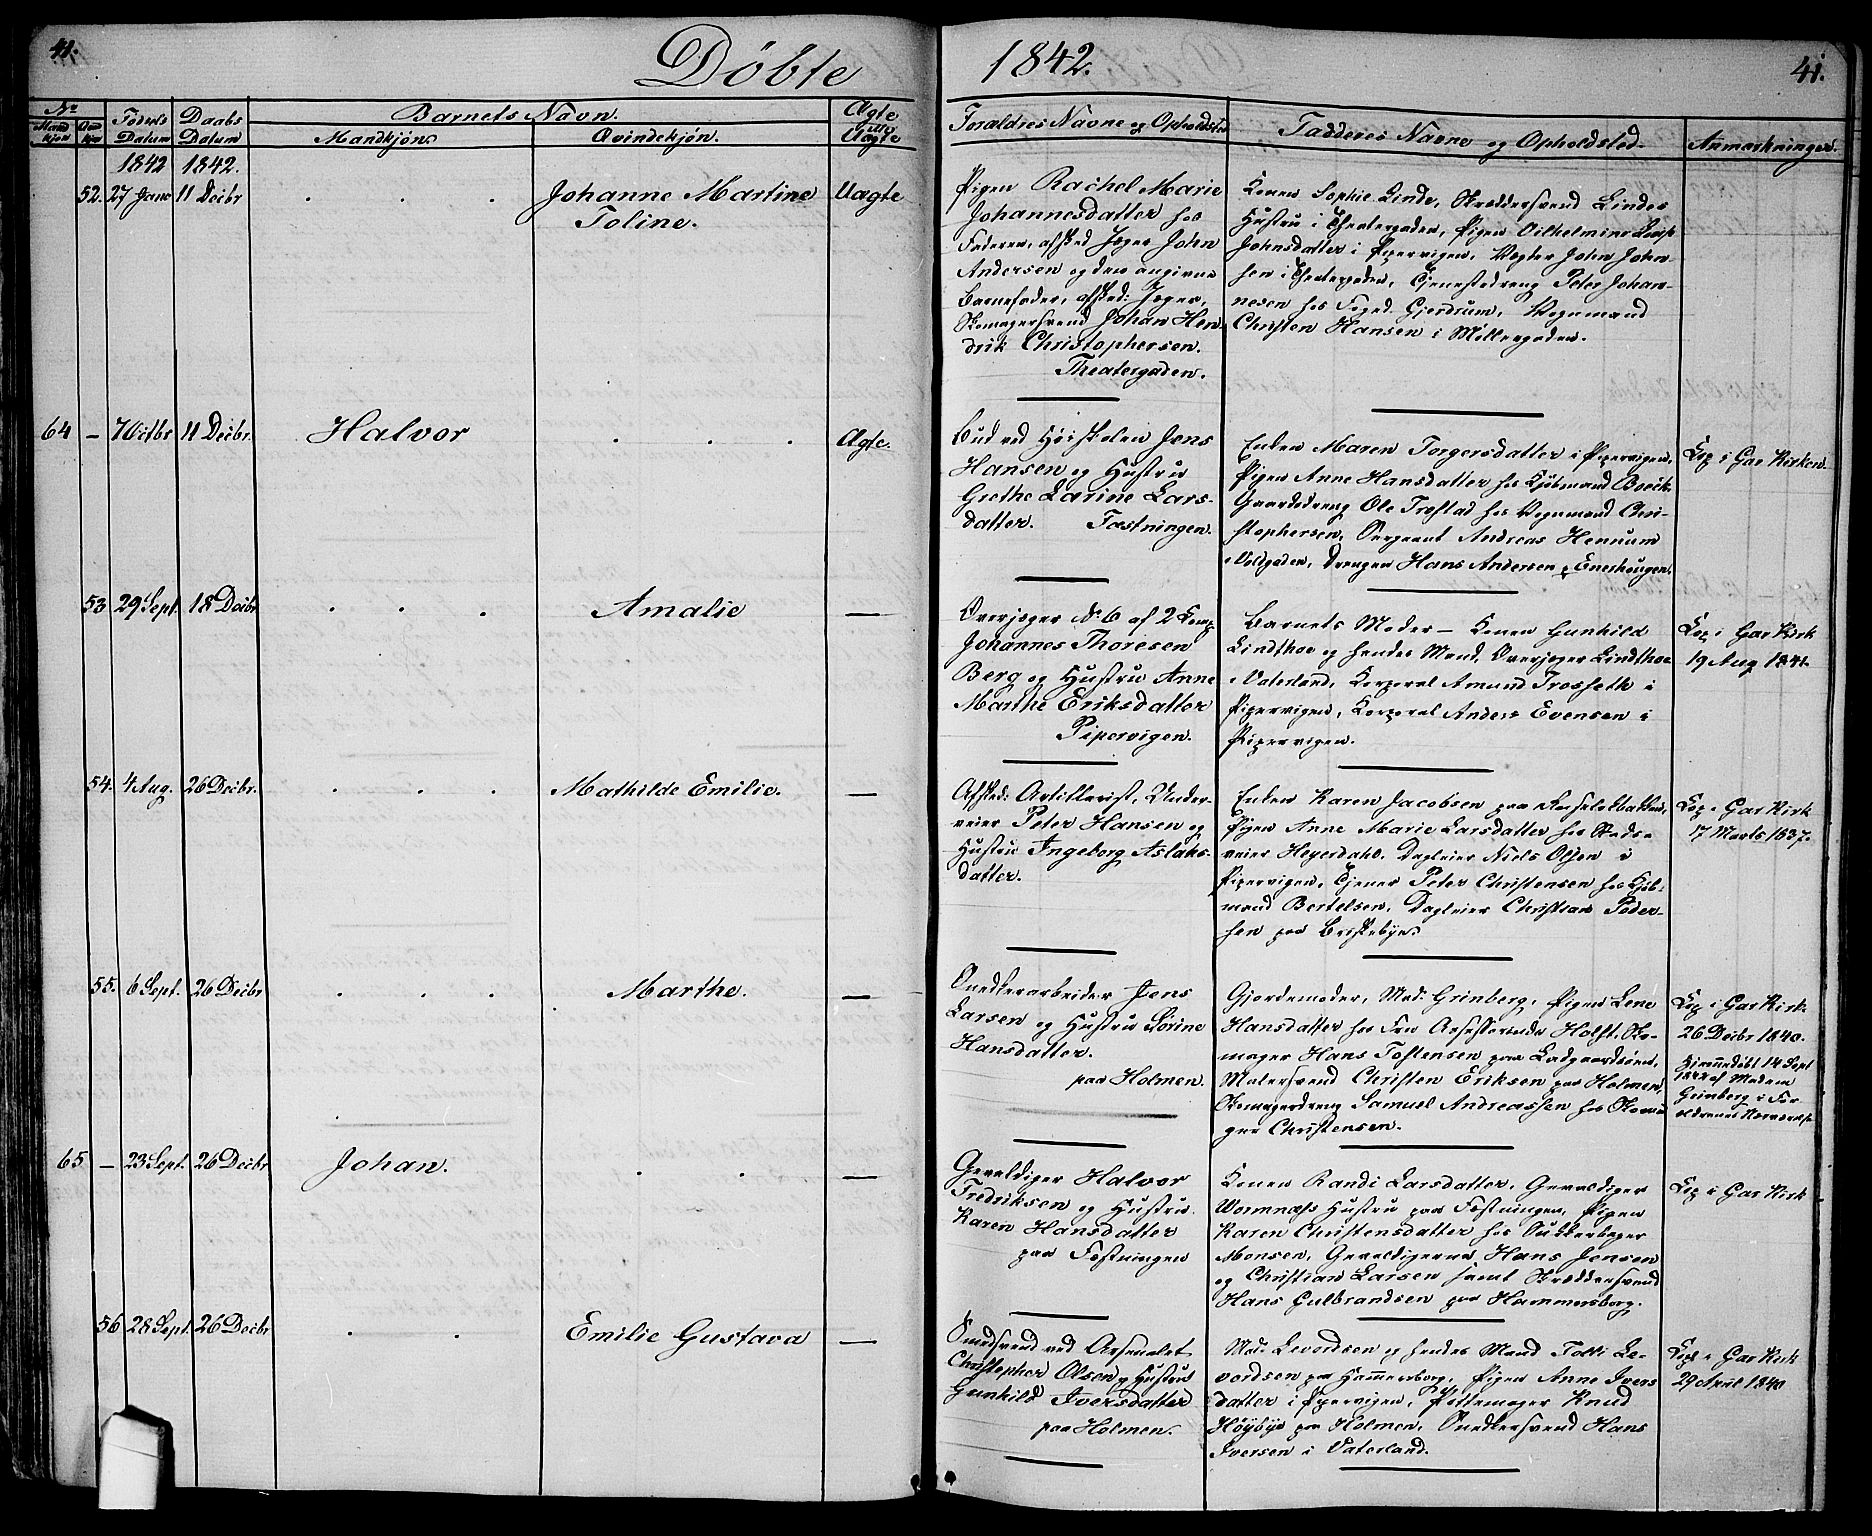 41.
Döbte
1842.
41.
No
Mand kjön
Qvin kjön
Födsels Datum
Daabs Datum
Barnets Navn.
Mandkjön.
Qvindekjön.
Ægte eller Uægte
Forældres Navne og Opholdsted
Fadderes Navne og Opholdsted.
Anmærkninger.
1842 1842.
52. 27 Janr 11 Decbr
Johanne Martine
Toline.
Uægte
Pigen Rachel Marie
Johannesdatter hos
Faderen, afsked Jæger John
Andersen og den angivne
Barnefader, afsked: Jæger,
Skomagersvend Johan Hen
drik Christophersen.
Theatergaden.
Konen Sophie Linde, Skreddersvend Lindes
Hustru i Theatergaden, Pigen Vilhelmine
Johnsdatter i Pipervigen, Vægter John John-
sen i Theatergaden, Tjenestedreng Peter Johan-
nesen hos Foged Gjerdrum, Vognmand
Christen Hansen i Möllergaden.
64 – 7 Octbr 11 Decbr.
Halvor
Ægte.
Bud ved Höiskolen Jens
Hansen og Hustru
Grethe Larine Lars-
datter. Fæstningen.
Enken Maren Torgersdatter i Pipervigen,
Pigen Anne Hansdatter hos Kjöbmand Boeck,
Gaardsdreng Ole Trostad hos Vognmand Chri-
stophersen, Sergeant Andreas Hennum
i Voldgaden, Drengen Hans Andersen p Enerhougen.
Cop i Gar Kirken.
53 29 Sept. 18 Decbr
Amalie
—
Overjæger No 6 af 2 Comp
Johannes Thoresen
Berg og Hustru Anne
Marthe Eriksdatter
Pipervigen.
Barnets Moder – Konen Gunhild
Lindthoe og hendes Mand, Overjæger Lindthoe
i Vaterland, Corporal Amund Trosseth i
Pipervigen, Corporal Anders Evensen i
Pipervigen.
Cop i Gar Kirk
19 Aug 1841.
54. 4 Aug. 26 Decbr.
Mathilde Emilie.
—
Afsked: Artillerist, Under-
veier Peter Hansen og
Hustru Ingeborg Aslaks-
datter.
Enken Karen Jacobsen paa
Pigen Anne Marie Larsdatter hos Stads-
veier Heyerdahl. Dagleier Niels Olsen i
Pipervigen, Tjener Peter Christensen hos Kjöb-
mand Bertelsen, Dagleier Christian Peder-
sen paa Briskebyen.
Cop i Gar Kirk
17 Marts 1837.
55. 6 Sept. 26 Decbr
Marthe.
—
Snedkerarbeider Jens
Larsen og Hustru Sörine
Hansdatter.
paa Holmen.
Gjordemoder, Mad: Grinberg, Pigen Lene
Hansdatter hos Fru Assessorinde Holst, Sko-
mager Hans Tostensen paa Ladegaardsöen,
Malersvend Christen Eriksen paa Holmen,
Skomagerdreng Samuel Andreassen hos Skoma
ger Christensen.
Cop i Gar Kirk
26 Decbr 1840.
Hjemmedöbt 14 Sept
1842 af Madam
Grinberg i For
ældrenes Nærværelse
65 – 23 Sept. 26 Decbr
Johan.
—
Gevaldiger Halvor
Fredriksen og Hustru
Karen Hansdatter
paa Fæstningen
Konen Randi Larsdatter, Gevaldiger
Wormnæss Hustru paa Fæstningen, Pigen
Karen Christensdatter hos Sukkerbager
Monsen, Gevaldigerne Hans Jensen
og Christian Larsen samt Skreddersvend
Hans Gulbrandsen paa Hammersborg.
Cop i Gar Kirk
56 28 Sept. 26 Decbr
Emilie Gustava
—
Smedsvend ved Arsenalet
Christopher Olsen og Hustru
Gunhild Iversdatter
paa Holmen.
Mad: Levordsen og hendes Mand Tolli Le-
vordsen paa Hammersborg, Pigen Anne Ivers
datter i Pipervigen, Pottemager Knud
Höyby paa Holmen, Snedkersvend Hans
Iversen i Vaterland.
Cop i Gar Kirk
29 April 1840